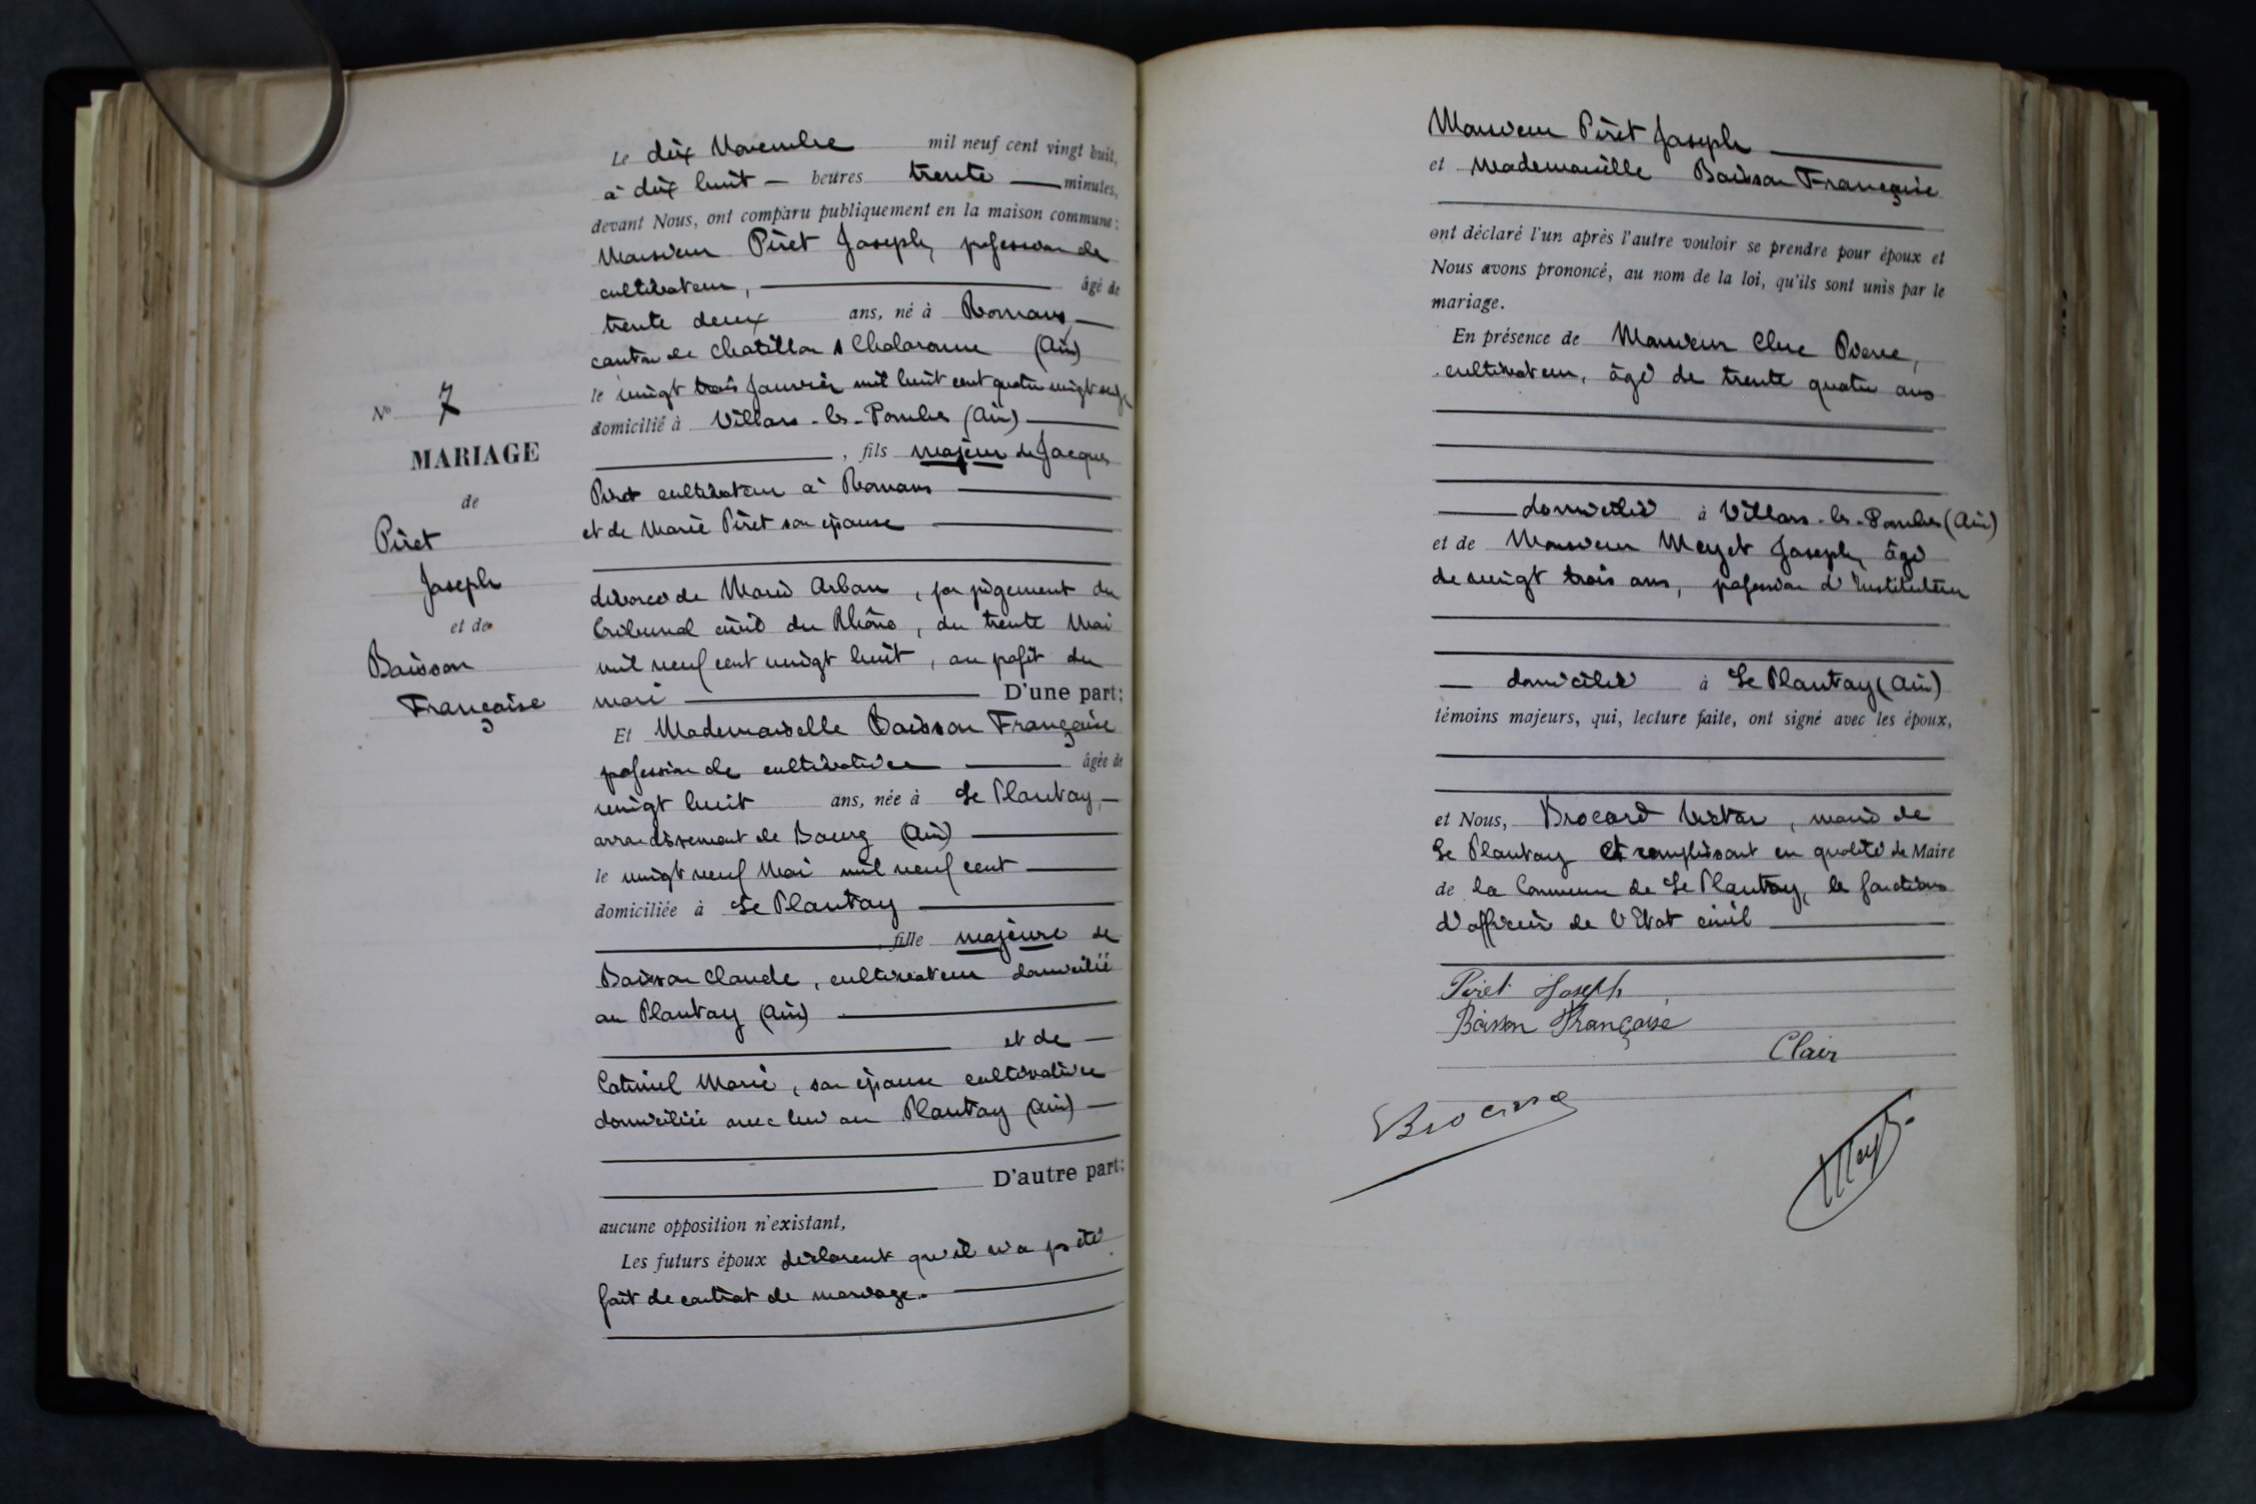 Le dix Novembre mil neuf cent vingt huit,
à dix huit heures trente minutes,
devant Nous, ont comparu publiquement en la maison commune :
Monsieur Piret Joseph, profession de
cultivateur, âgé de
trente deux ans, né à Romans,
canton de Chatillon s Chalaronne (Ain)
le vingt trois Janvier mil huit cent quatre vingt seize
domicilié à Villars-les-Dombes (Ain)
, fils majeur de Jacques
Piret cultivateur à Romans
et de Marie Piret son épouse
divorcé de Marie Arban, par jugement du
Tribunal civil du Rhône, du trente Mai
mil neuf cent vingt huit, au profit du
mari D'une part;
Et Mademoiselle Boisson Françoise
profession de cultivatrice âgée de
vingt huit ans, née à Le Plantay,
arrondissement de Bourg (Ain)
le vingt neuf Mai mil neuf cent
domiciliée à Le Plantay
, fille majeure de
Boisson Claude, cultivateur domicilié
au Plantay (Ain)
et de
Marie, son épouse cultivatrice
domiciliée avec lui au Plantay (Ain)
D'autre part:
aucune opposition n'existant,
Les futurs époux déclarent qu'il n'a pas été
fait de contrat de mariage.
N° 7
MARIAGE
de
Piret
Joseph
et de
Boisson
Françoise
Monsieur Piret Joseph
et Mademoiselle Boisson Françoise
ont déclaré l'un après l'autre vouloir se prendre pour époux et
Nous avons prononcé, au nom de la loi, qu'ils sont unis par le
mariage.
En présence de Monsieur Pierre,
cultivateur, âgé de trente quatre ans
domicilié à Villars-les-Dombes (Ain)
et de Monsieur Meyet Joseph, âgé
de vingt trois ans, profession d'Instituteur
domicilié à Le Plantay (Ain)
témoins majeurs, qui, lecture faite, ont signé avec les époux,
et Nous, Brocard Victor, maire de
Le Plantay et remplissant en qualité de Maire
de la Commune de Le Plantay, les fonctions
d'officier de l'Etat civil
Piret Joseph
Boisson Françoise
Clair
Brocard